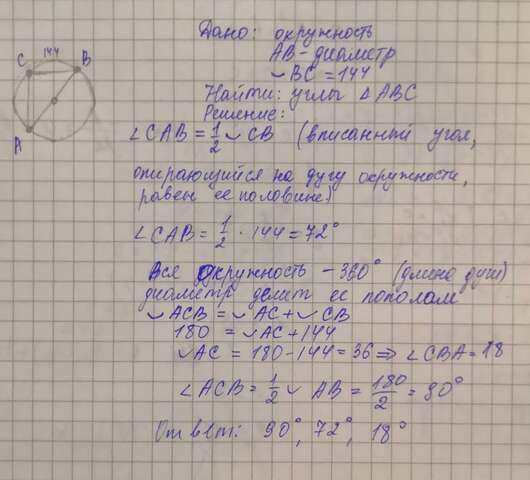 Дано: окружность
AB - диаметр
◡BC = 144
Найти: углы ΔABC
Решение:
∠CAB = 1/2 ◡CB (вписанный угол,
опирающийся на дугу окружности,
равен ее половине)
∠CAB = 1/2 · 144 = 72°
Вся окружность - 360° (длина дуги)
диаметр делит ее пополам
◡ACB = ◡AC + ◡CB
180 = ◡AC + 144
◡AC = 180 - 144 = 36 => ∠CBA = 18
∠ACB = 1/2 ◡ AB = 180/2 = 90°
Ответ: 90°, 72°, 18°
144
C
B
A